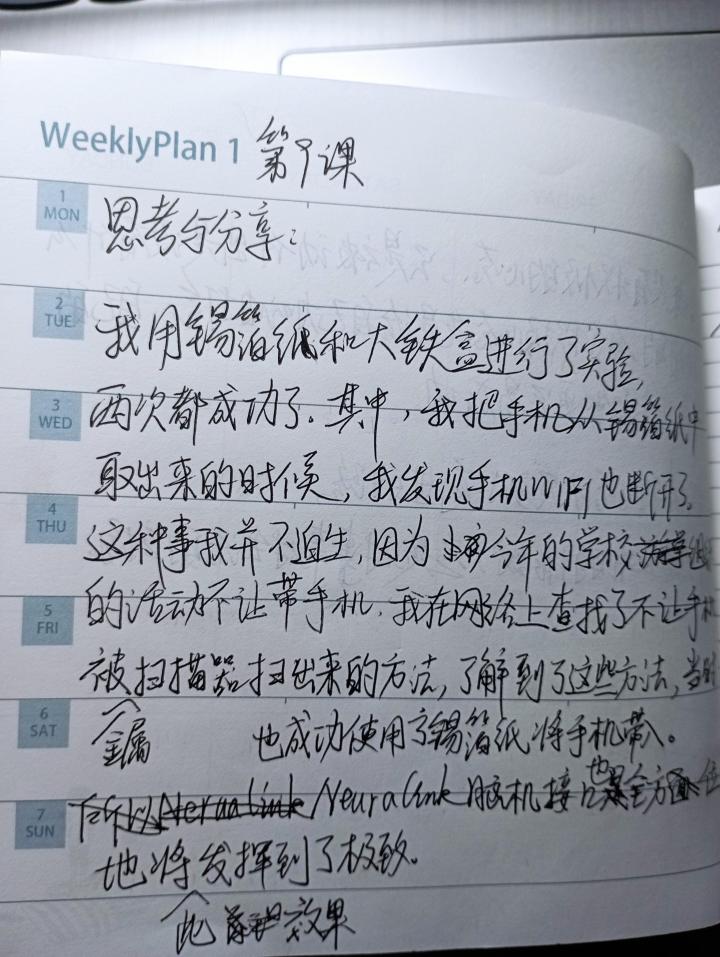 WeeklyPlan 1 第9课
1 MON
思考与分享：
2 TUE
我用锡箔纸和大铁盒进行了实验，
3 WED
两次都成功了。其中，我把手机从锡箔纸中
取出来的时候，我发现手机WIFI也断开了。
4 THU
这种事我并不陌生，因为今年的学校组织
的活动不让带手机，我在网络上查找了不让手机
5 FRI
被扫描器扫出来的方法，了解到了这些方法，当时
6 SAT
金属 也成功使用了锡箔纸将手机带入。
7 SUN
Neuralink脑机接口也是全方位
地将发挥到了极致。
此效果